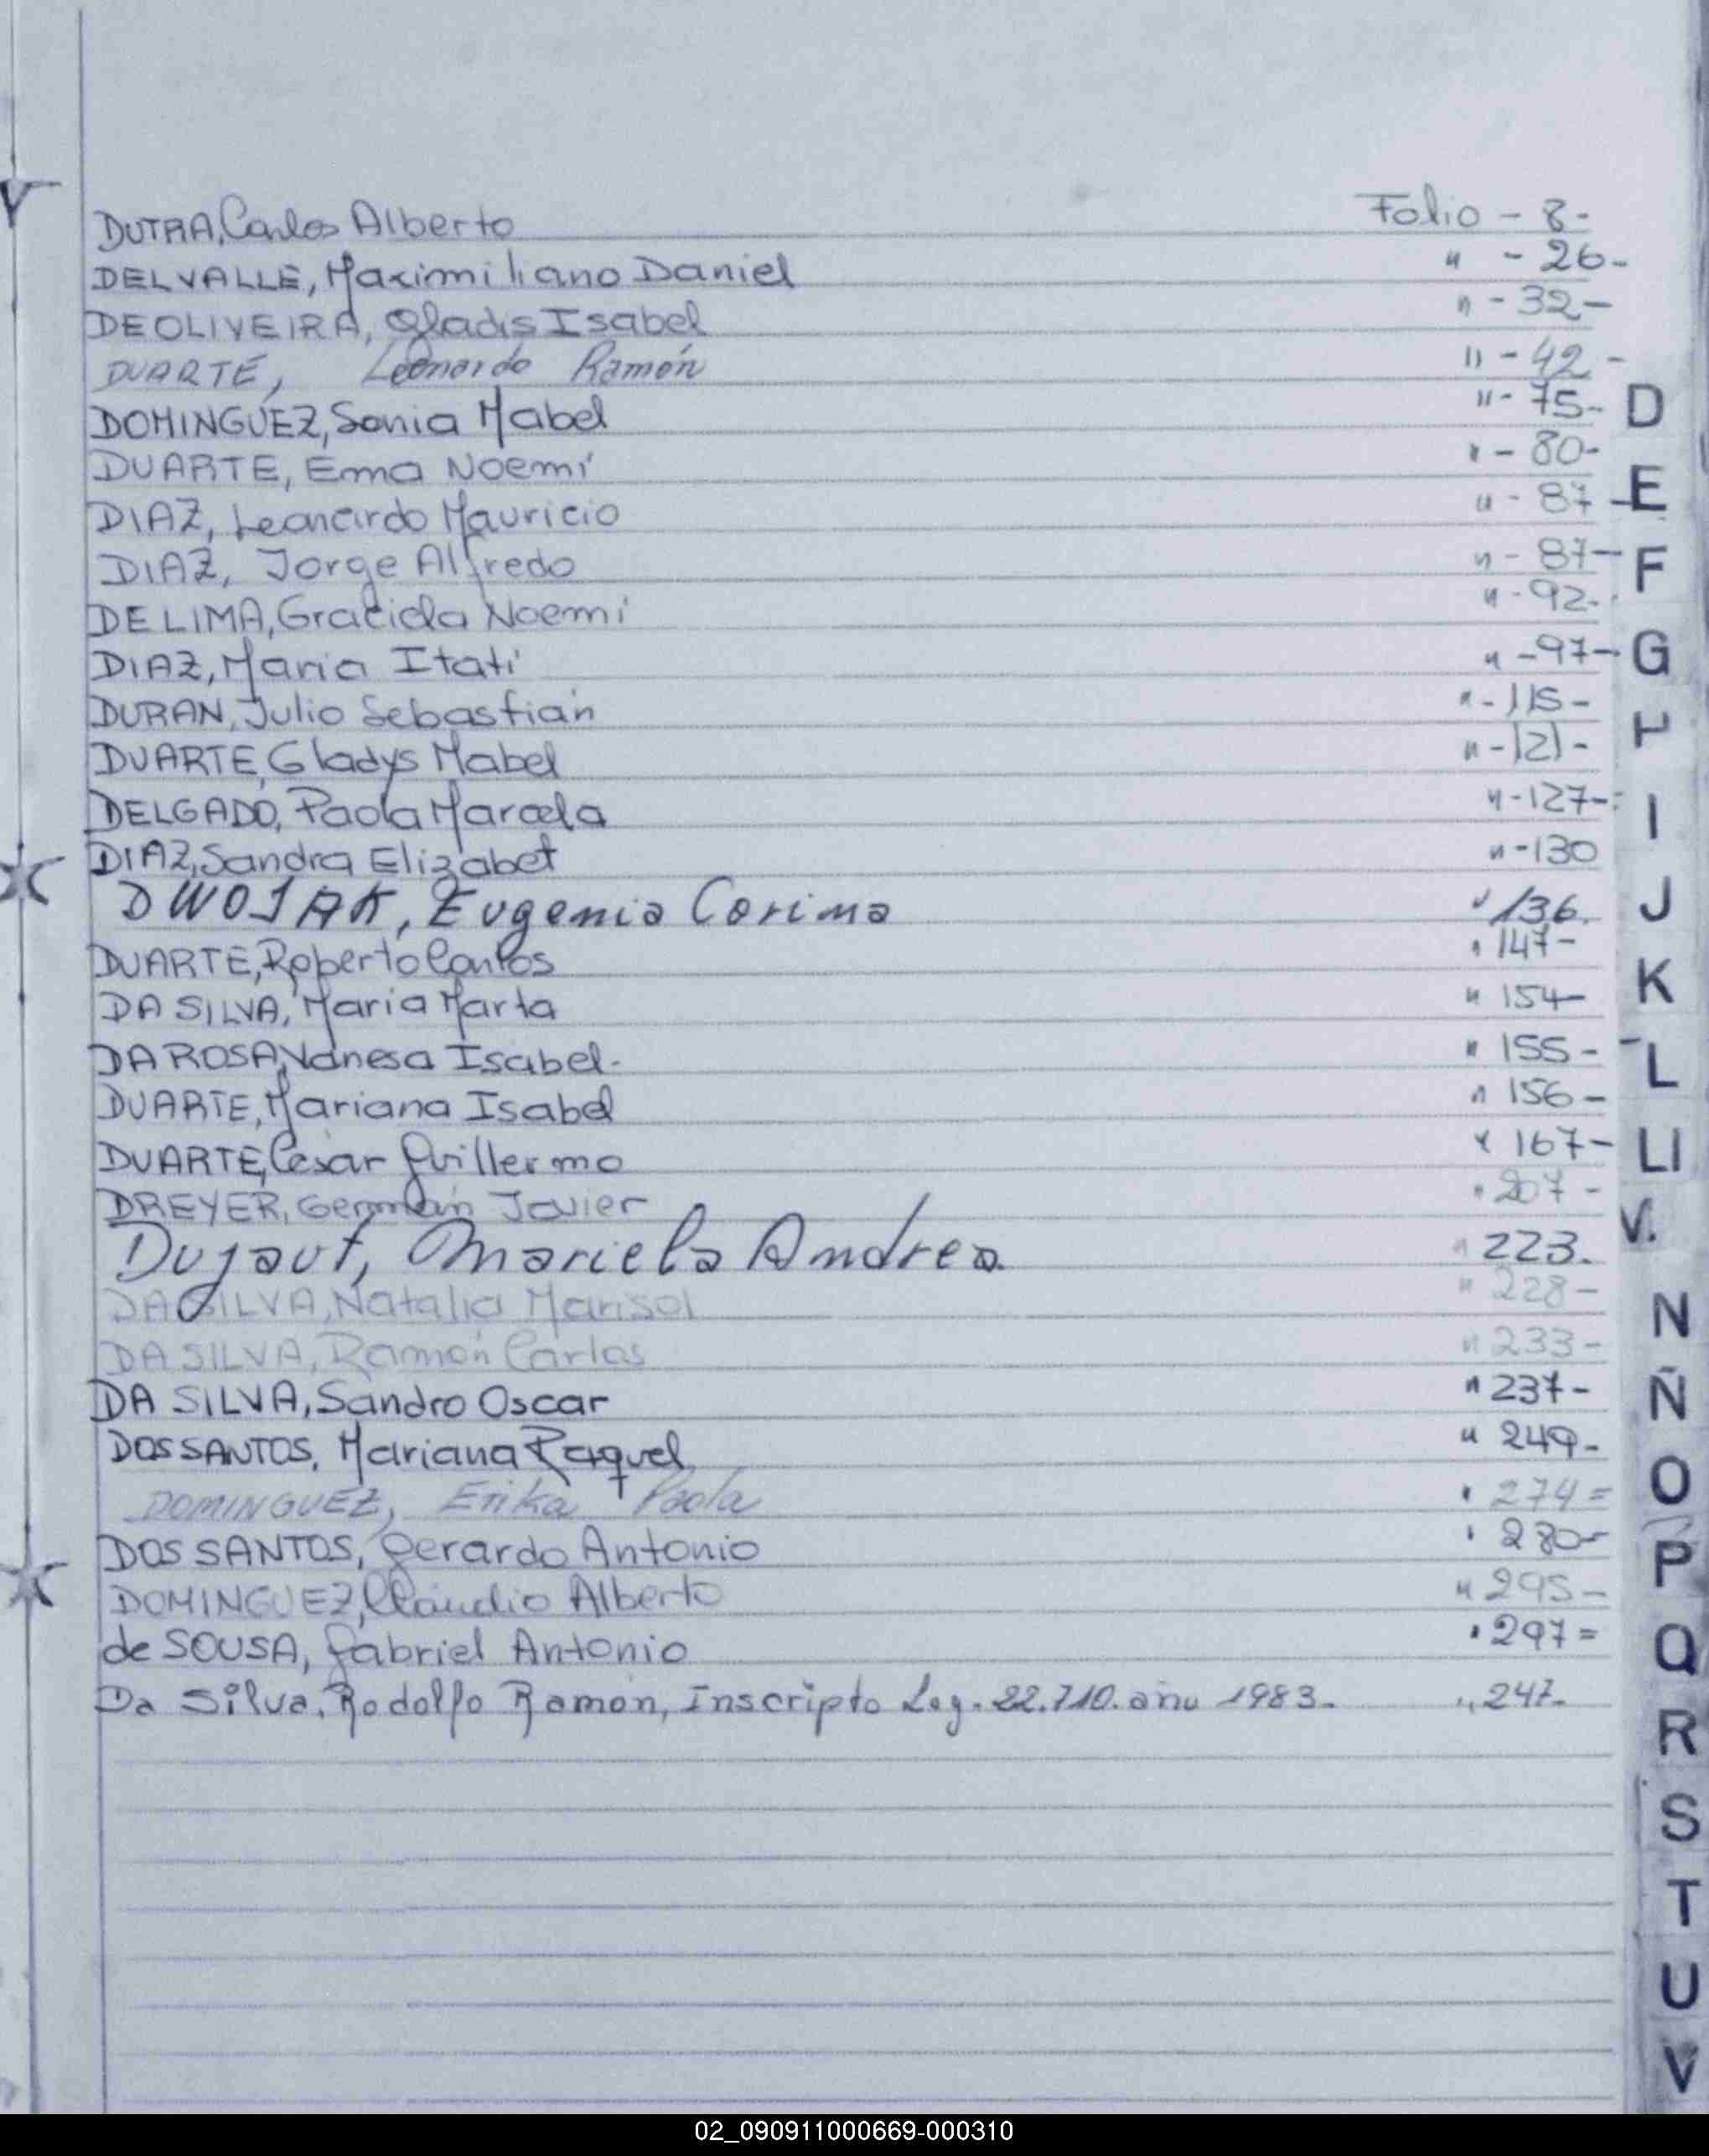 DUTRA, Carlos Alberto Folio - 8-
DELVALLE, Maximiliano Daniel " - 26-
DEOLIVEIRA, Gladis Isabel " - 32-
DUARTE, Leonardo Ramón " - 42 -
DOMINGUEZ, Sonia Mabel " - 75-
DUARTE, Ema Noemí " - 80-
DIAZ, Leonardo Mauricio " - 87-
DIAZ, Jorge Alfredo " - 87-
DE LIMA, Graciela Noemí " - 92-
DIAZ, Maria Itatí " - 97-
DURAN, Julio Sebastián " - 115-
DUARTE, Gladys Mabel " - 121-
DELGADO, Paola Marcela " - 127-
DIAZ, Sandra Elizabet " - 130
DWOJAK, Eugenia Corima " 136.
DUARTE, Roberto Carlos " 147-
DA SILVA, Maria Marta " 154-
DA ROSA, Vanesa Isabel- " 155-
DUARTE, Mariana Isabel " 156-
DUARTE, César Guillermo " 167-
DREYER, Germán Javier " 207-
Dujaut, Mariela Andrea. " 223.
DA SILVA, Natalia Marisol " 228-
DA SILVA, Ramón Carlos " 233-
DA SILVA, Sandro Oscar " 237-
DOS SANTOS, Mariana Raquel " 249-
DOMINGUEZ, Erika Paola " 274=
DOS SANTOS, Gerardo Antonio " 280-
DOMINGUEZ, Claudio Alberto " 295-
de SOUSA, Gabriel Antonio " 297=
Da Silva, Rodolfo Ramón, Inscripto Leg. 22.710. año 1983. " 247.
D
E
F
G
H
I
J
K
L
Ll
N
Ñ
O
P
Q
R
S
T
U
V
02_090911000669-000310